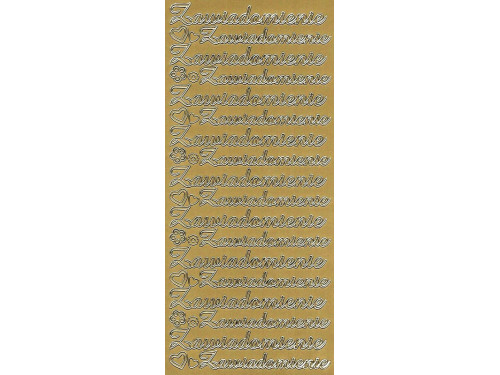 Zawiadomienie
Zawiadomienie
Zawiadomienie
Zawiadomienie
Zawiadomienie
Zawiadomienie
Zawiadomienie
Zawiadomienie
Zawiadomienie
Zawiadomienie
Zawiadomienie
Zawiadomienie
Zawiadomienie
Zawiadomienie
Zawiadomienie
Zawiadomienie
Zawiadomienie
Zawiadomienie